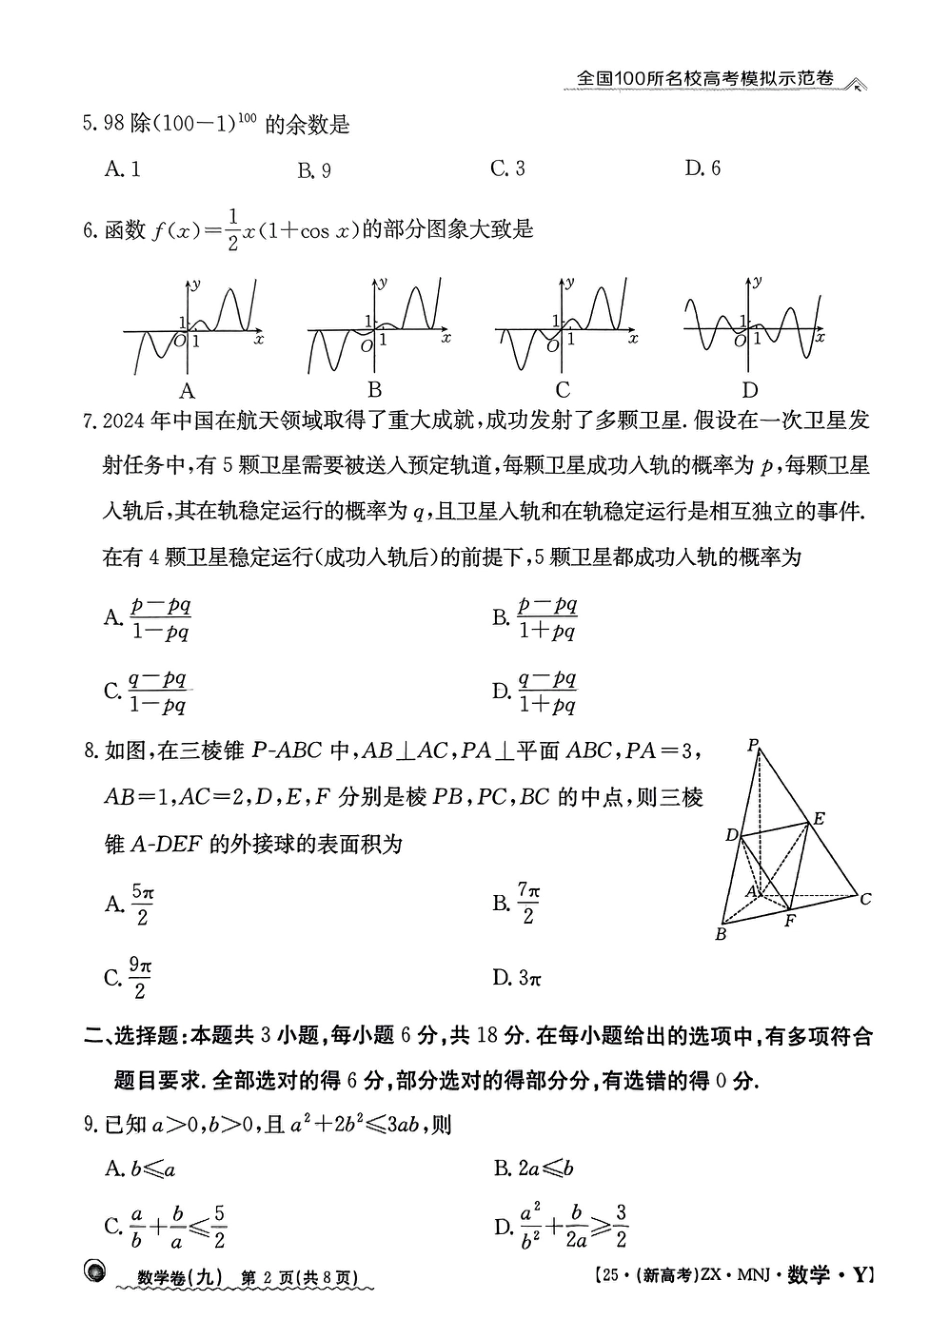 全国100所名校高考模拟示范卷
5. 98 除(100-1)^100 的余数是
A. 1 B. 9 C. 3 D. 6
6. 函数 f(x)=1/2 x(1+cos x)的部分图象大致是
y 1 O 1 x y 1 O 1 x y 1 O 1 x y 1 O 1 x
A B C D
7. 2024 年中国在航天领域取得了重大成就,成功发射了多颗卫星. 假设在一次卫星发
射任务中,有 5 颗卫星需要被送入预定轨道,每颗卫星成功入轨的概率为 p,每颗卫星
入轨后,其在轨稳定运行的概率为 q,且卫星入轨和在轨稳定运行是相互独立的事件.
在有 4 颗卫星稳定运行(成功入轨后)的前提下,5 颗卫星都成功入轨的概率为
A. (p-pq)/(1-pq) B. (p-pq)/(1+pq)
C. (q-pq)/(1-pq) D. (q-pq)/(1+pq)
8. 如图,在三棱锥 P-ABC 中,AB⊥AC,PA⊥平面 ABC,PA=3,
AB=1,AC=2,D,E,F 分别是棱 PB,PC,BC 的中点,则三棱
锥 A-DEF 的外接球的表面积为
P E D A C F B
A. 5π/2 B. 7π/2
C. 9π/2 D. 3π
二、选择题:本题共 3 小题,每小题 6 分,共 18 分. 在每小题给出的选项中,有多项符合
题目要求. 全部选对的得 6 分,部分选对的得部分分,有选错的得 0 分.
9. 已知 a>0,b>0,且 a²+2b²≤3ab,则
A. b≤a B. 2a≤b
C. a/b+b/a≤5/2 D. a²/b²+b/2a≥3/2
数学卷(九) 第 2 页(共 8 页) 【25·(新高考)ZX·MNJ·数学·Y】